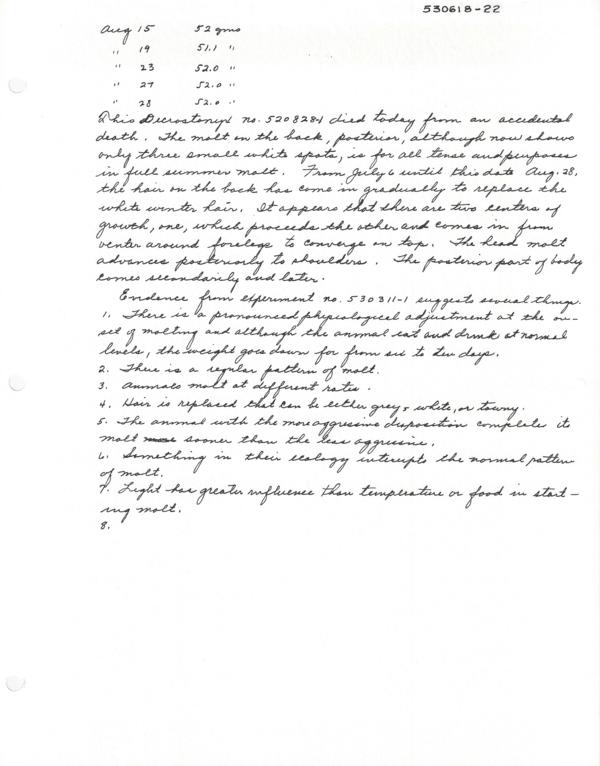 530618-22
Aug 15 52 gms
" 19 51.1 "
" 23 52.0 "
" 27 52.0 "
" 28 52.0 "
This Dicrostonyx no. 520828-1 died today from an accidental
death. The molt on the back, posterior, although now shows
only three small white spots, is for all tense and purposes
in full summer molt. From July 6 until this date Aug. 28,
the hair on the back has come in gradually to replace the
white winter hair. It appears that there are two centers of
growth, one, which proceeds the other and comes in from
venter around forelegs to converge on top. The head molt
advances posteriorly to shoulders. The posterior part of body
comes secondarily and later.
Evidence from experiment no. 530311-1 suggests several things.
1. There is a pronounced physiological adjustment at the on-
set of molting and although the animal eat and drink at normal
levels, the weight goes down for from six to ten days.
2. There is a regular pattern of molt.
3. Animals molt at different rates.
4. Hair is replaced that can be either grey, white, or tawny.
5. The animal with the more aggressive disposition complete its
molt sooner than the less aggressive.
6. Something in their ecology interrupts the normal pattern
of molt.
7. Light has greater influence than temperature or food in start-
ing molt.
8.